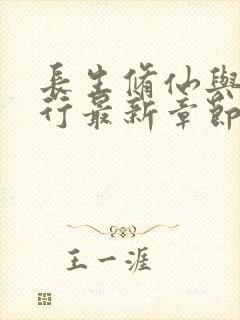 長生脩仙與
行最新章節
王一涯